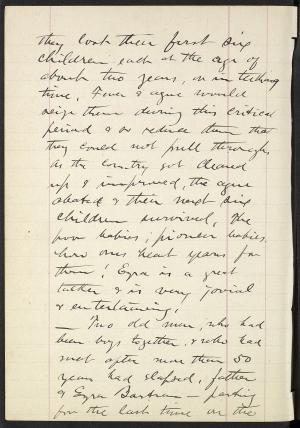 they lost their first six
children each at the age of
about two years, or in teething
time. Fever & ague would
seize them during this critical
period & so reduce them that
they could not pull through.
As the country got cleared
up & improved, the ague
abated & their next six
children survived. The
poor babies; pioneer babies
how ones heart yearns for
them! Ezra is a great
talker & is very jovial
& entertaining.
— Two old men, who had
been boys together, & who had
met after more than 50
years had elapsed, father
& Ezra Bartram — parting
for the last time on the